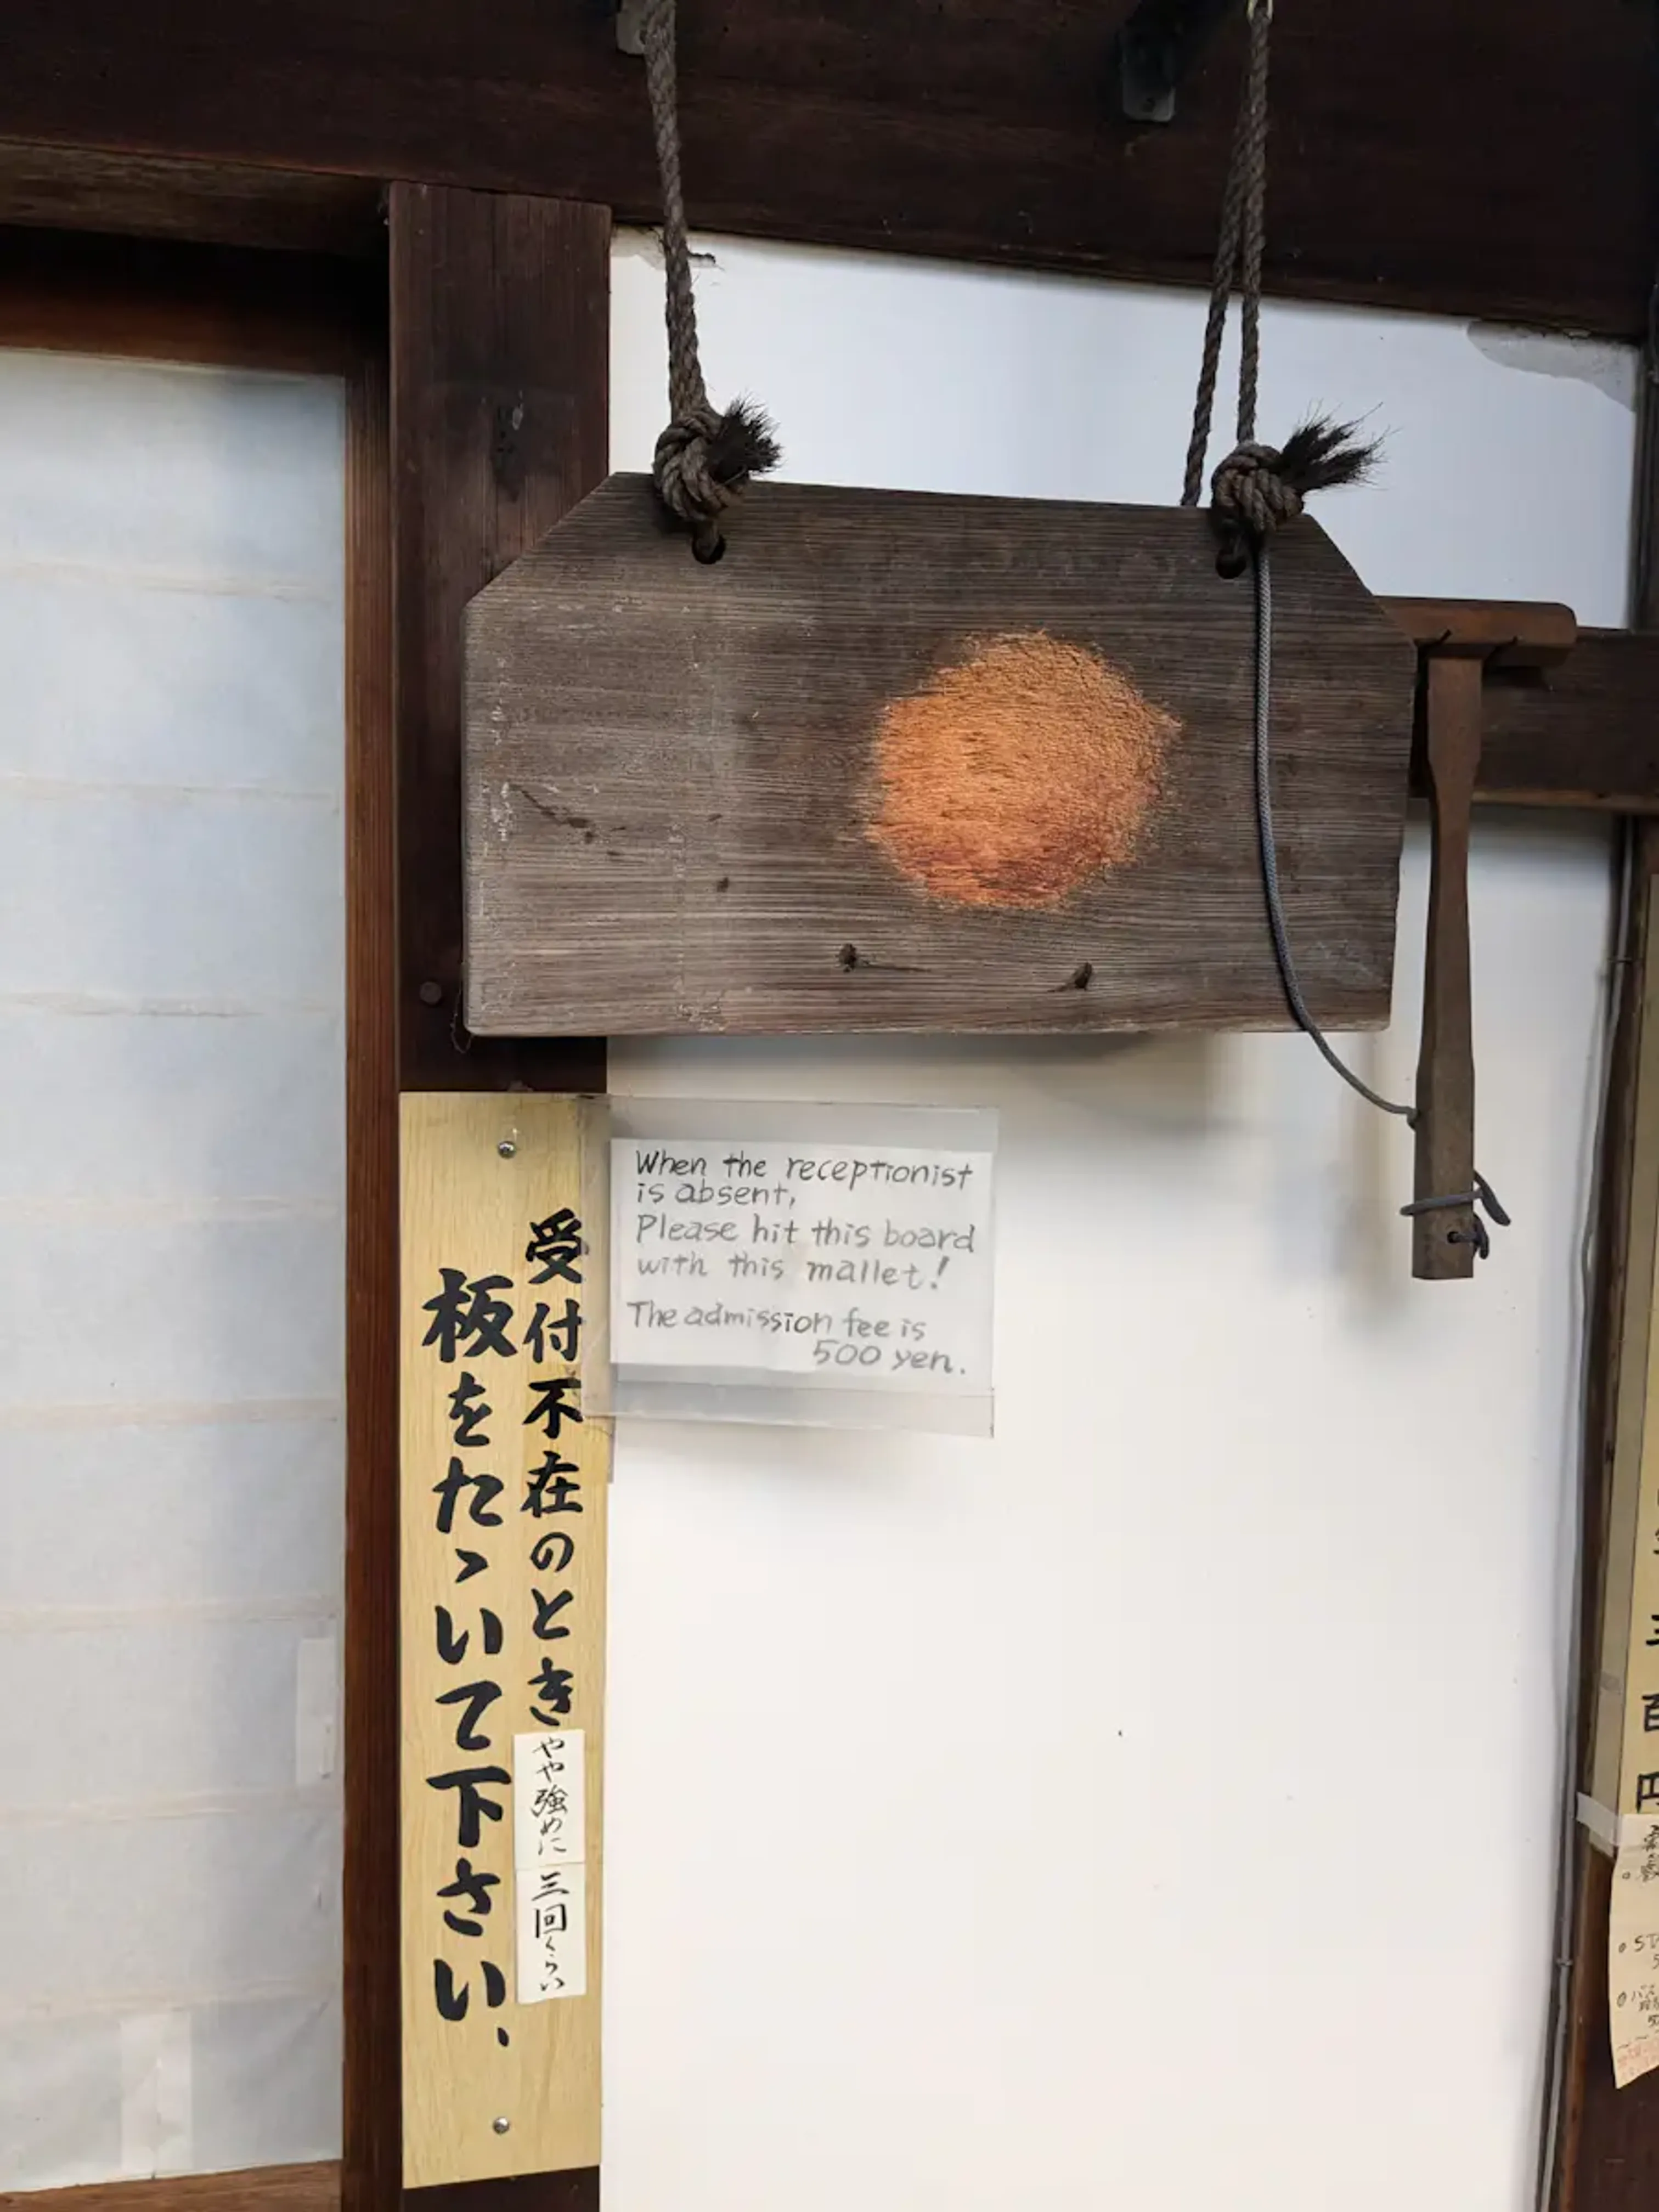 When the receptionist
is absent,
Please hit this board
with this mallet!
The admission fee is
500 yen.
受付不在のとき
やや強めに
三回くらい
板をたゝいて下さい、
百円